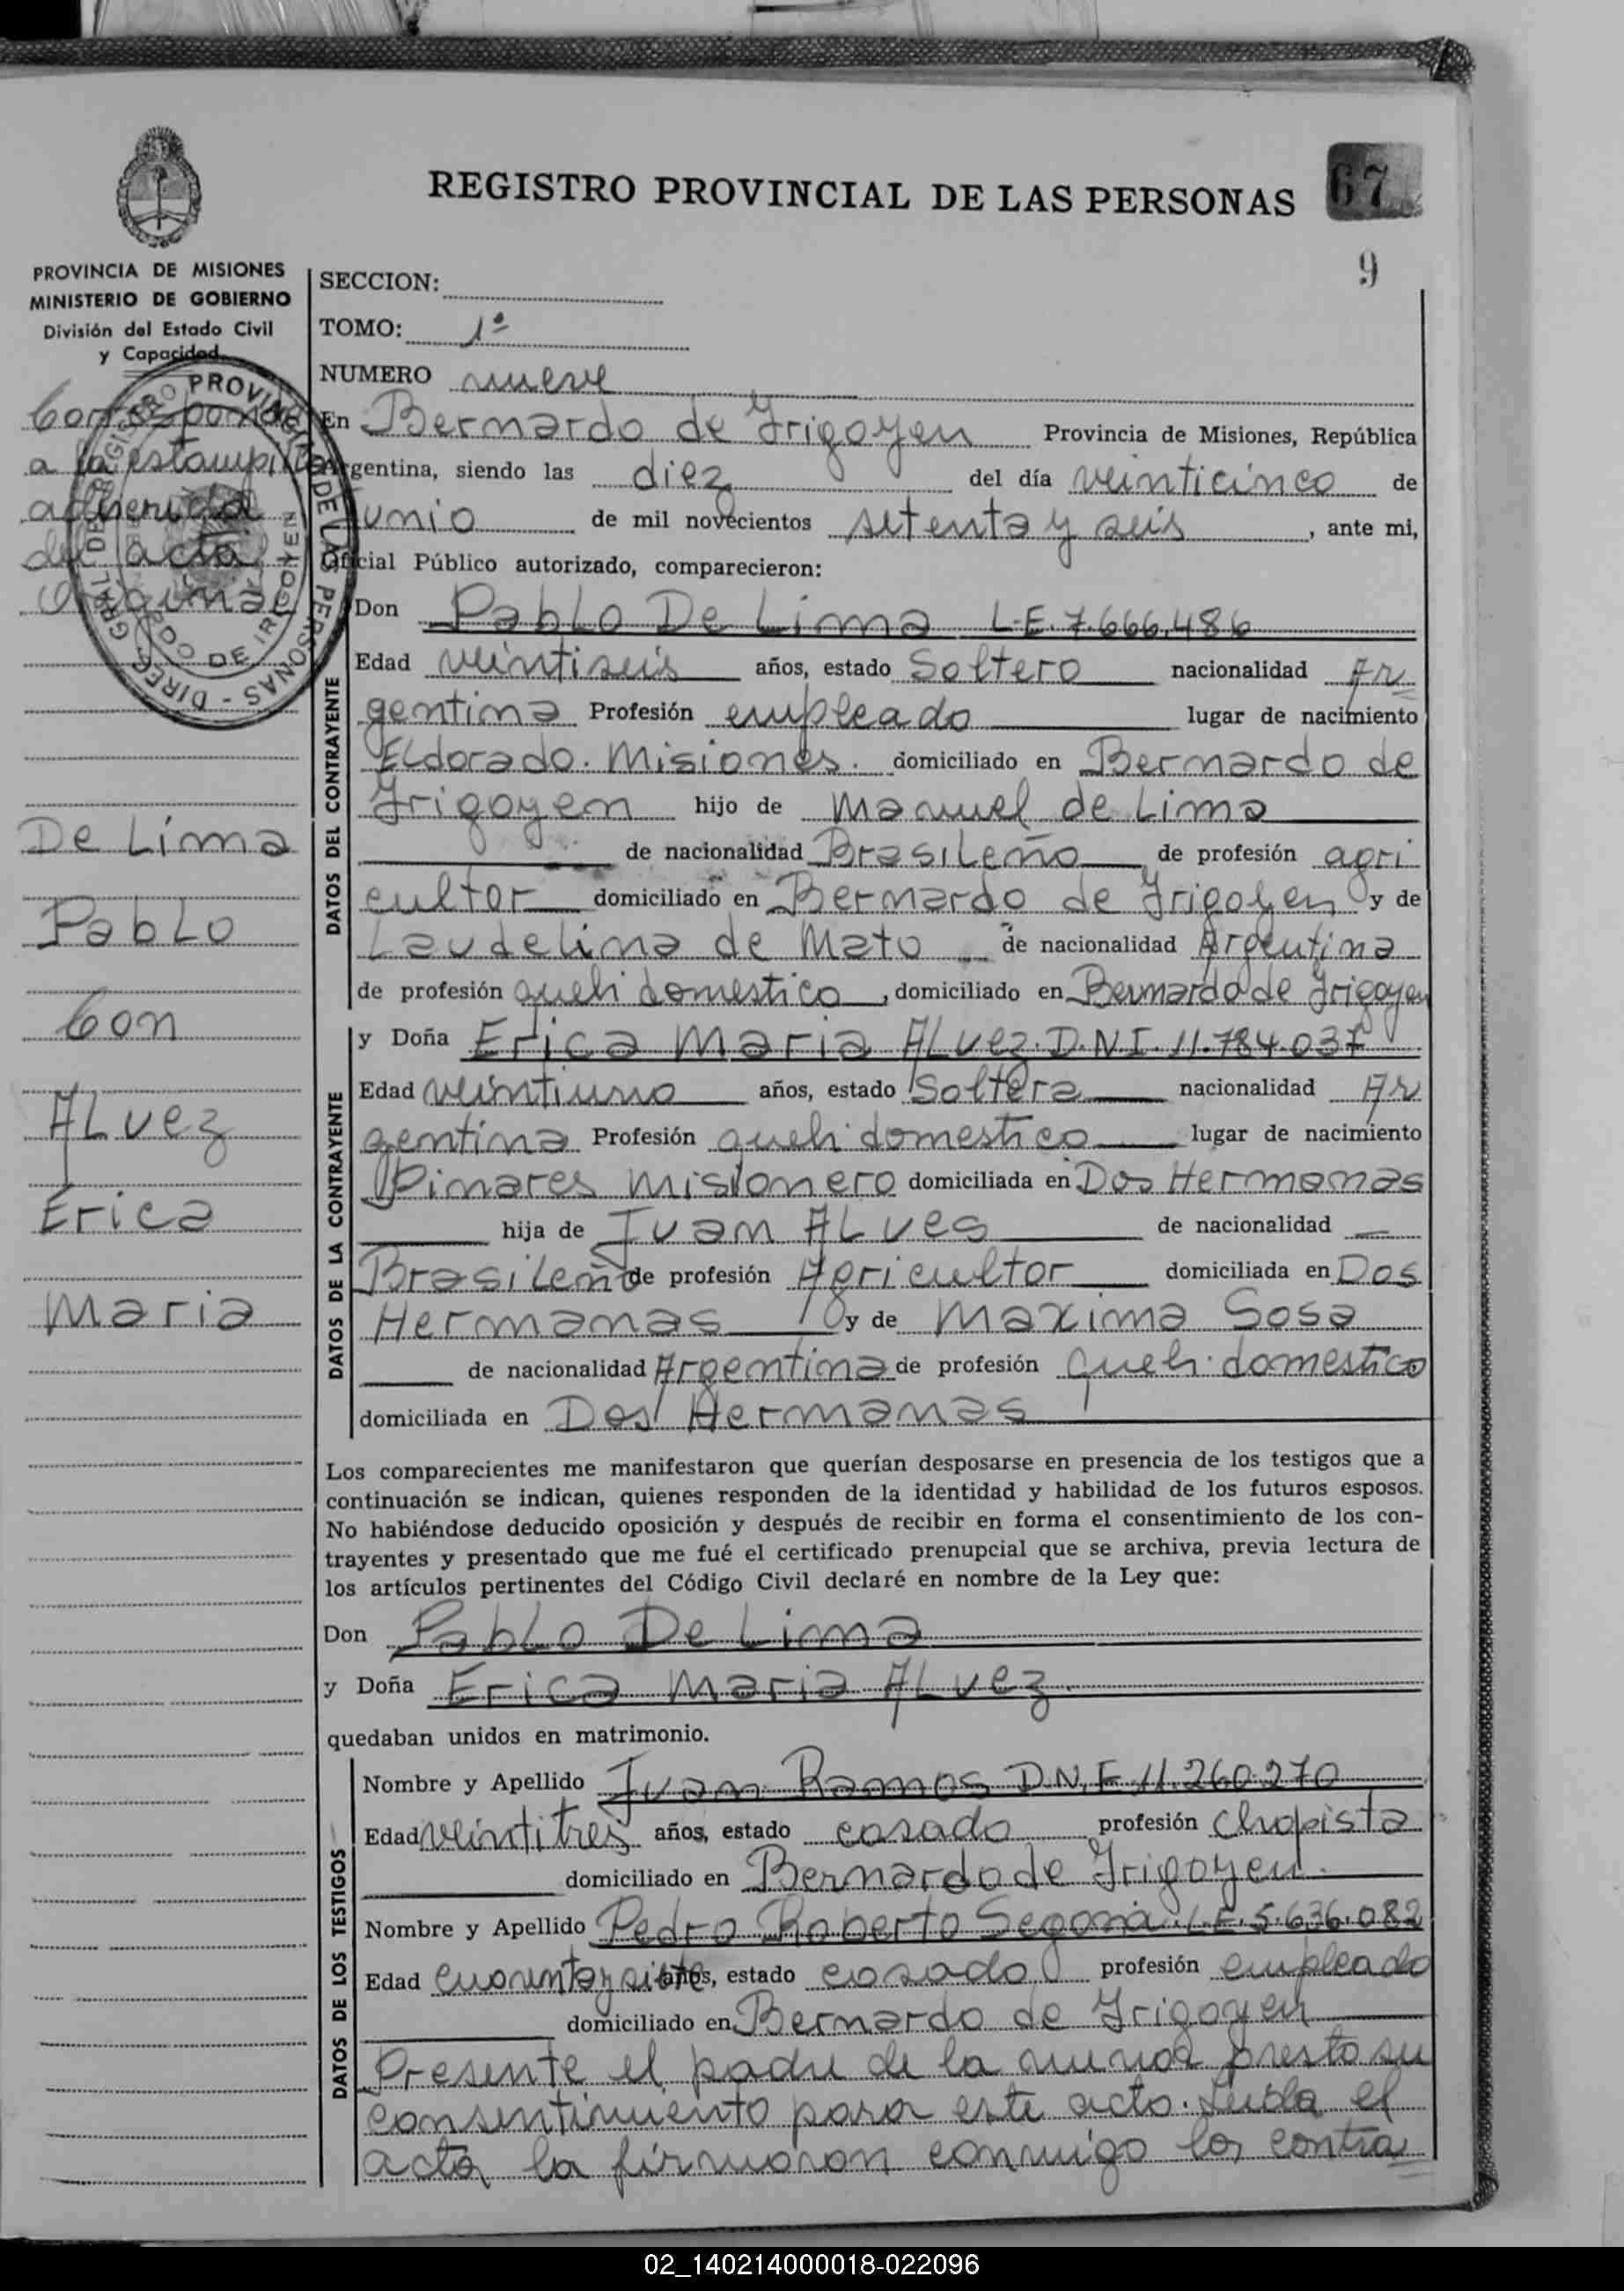 REGISTRO PROVINCIAL DE LAS PERSONAS
67
9
PROVINCIA DE MISIONES
MINISTERIO DE GOBIERNO
División del Estado Civil
y Capacidad
Corresponde
a la estampilla
adherida
del acta
Original
REGISTRO PROVINCIAL DE LAS PERSONAS - DIREC. GRAL. DE
BERNARDO DE IRIGOYEN
De Lima
Pablo
Con
ALvez
Erica
Maria
SECCION:
TOMO: 1º
NUMERO nueve
En Bernardo de Yrigoyen Provincia de Misiones, República
Argentina, siendo las diez del día veinticinco de
Junio de mil novecientos setenta y seis, ante mi,
Oficial Público autorizado, comparecieron:
DATOS DEL CONTRAYENTE
Don Pablo De Lima L.E. 7.666.486
Edad veintiseis años, estado Soltero nacionalidad Ar
gentina Profesión empleado lugar de nacimiento
ELdorado. Misiones. domiciliado en Bernardo de
Yrigoyen hijo de Manuel de Lima
de nacionalidad BrasiLeño de profesión agri
cultor domiciliado en Bernardo de Yrigoyen y de
Laudelina de Mato de nacionalidad Argentina
de profesión queh domestico, domiciliado en Bernardo de Yrigoyen
DATOS DE LA CONTRAYENTE
y Doña Erica Maria ALvez. D.N.I. 11.784.037
Edad veintiuno años, estado Soltera nacionalidad Ar
gentina Profesión queh. domestico lugar de nacimiento
Pinares Misionero domiciliada en Dos Hermanas
hija de Juan ALves de nacionalidad
BrasiLeño de profesión Agricultor domiciliada en Dos
Hermanas y de Maxima Sosa
de nacionalidad Argentina de profesión queh. domestico
domiciliada en Dos Hermanas
Los comparecientes me manifestaron que querían desposarse en presencia de los testigos que a
continuación se indican, quienes responden de la identidad y habilidad de los futuros esposos.
No habiéndose deducido oposición y después de recibir en forma el consentimiento de los con-
trayentes y presentado que me fué el certificado prenupcial que se archiva, previa lectura de
los artículos pertinentes del Código Civil declaré en nombre de la Ley que:
Don Pablo De Lima
y Doña Erica Maria ALvez.
quedaban unidos en matrimonio.
DATOS DE LOS TESTIGOS
Nombre y Apellido Juan Ramos D.N.I 11.260.270
Edad veintitres años, estado casado profesión Chapista
domiciliado en Bernardo de Yrigoyen.
Nombre y Apellido Pedro Roberto Segovia L.E. 5.636.082
Edad cuarenta y siete años, estado casado profesión empleado
domiciliado en Bernardo de Yrigoyen
Presente el padre de la menor presto su
consentimiento para este acto. Leida el
acta la firmaron conmigo los contra
02_140214000018-022096